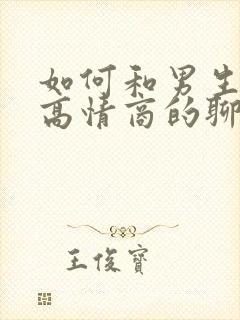 如何和男生
高情商的聊
王俊寶